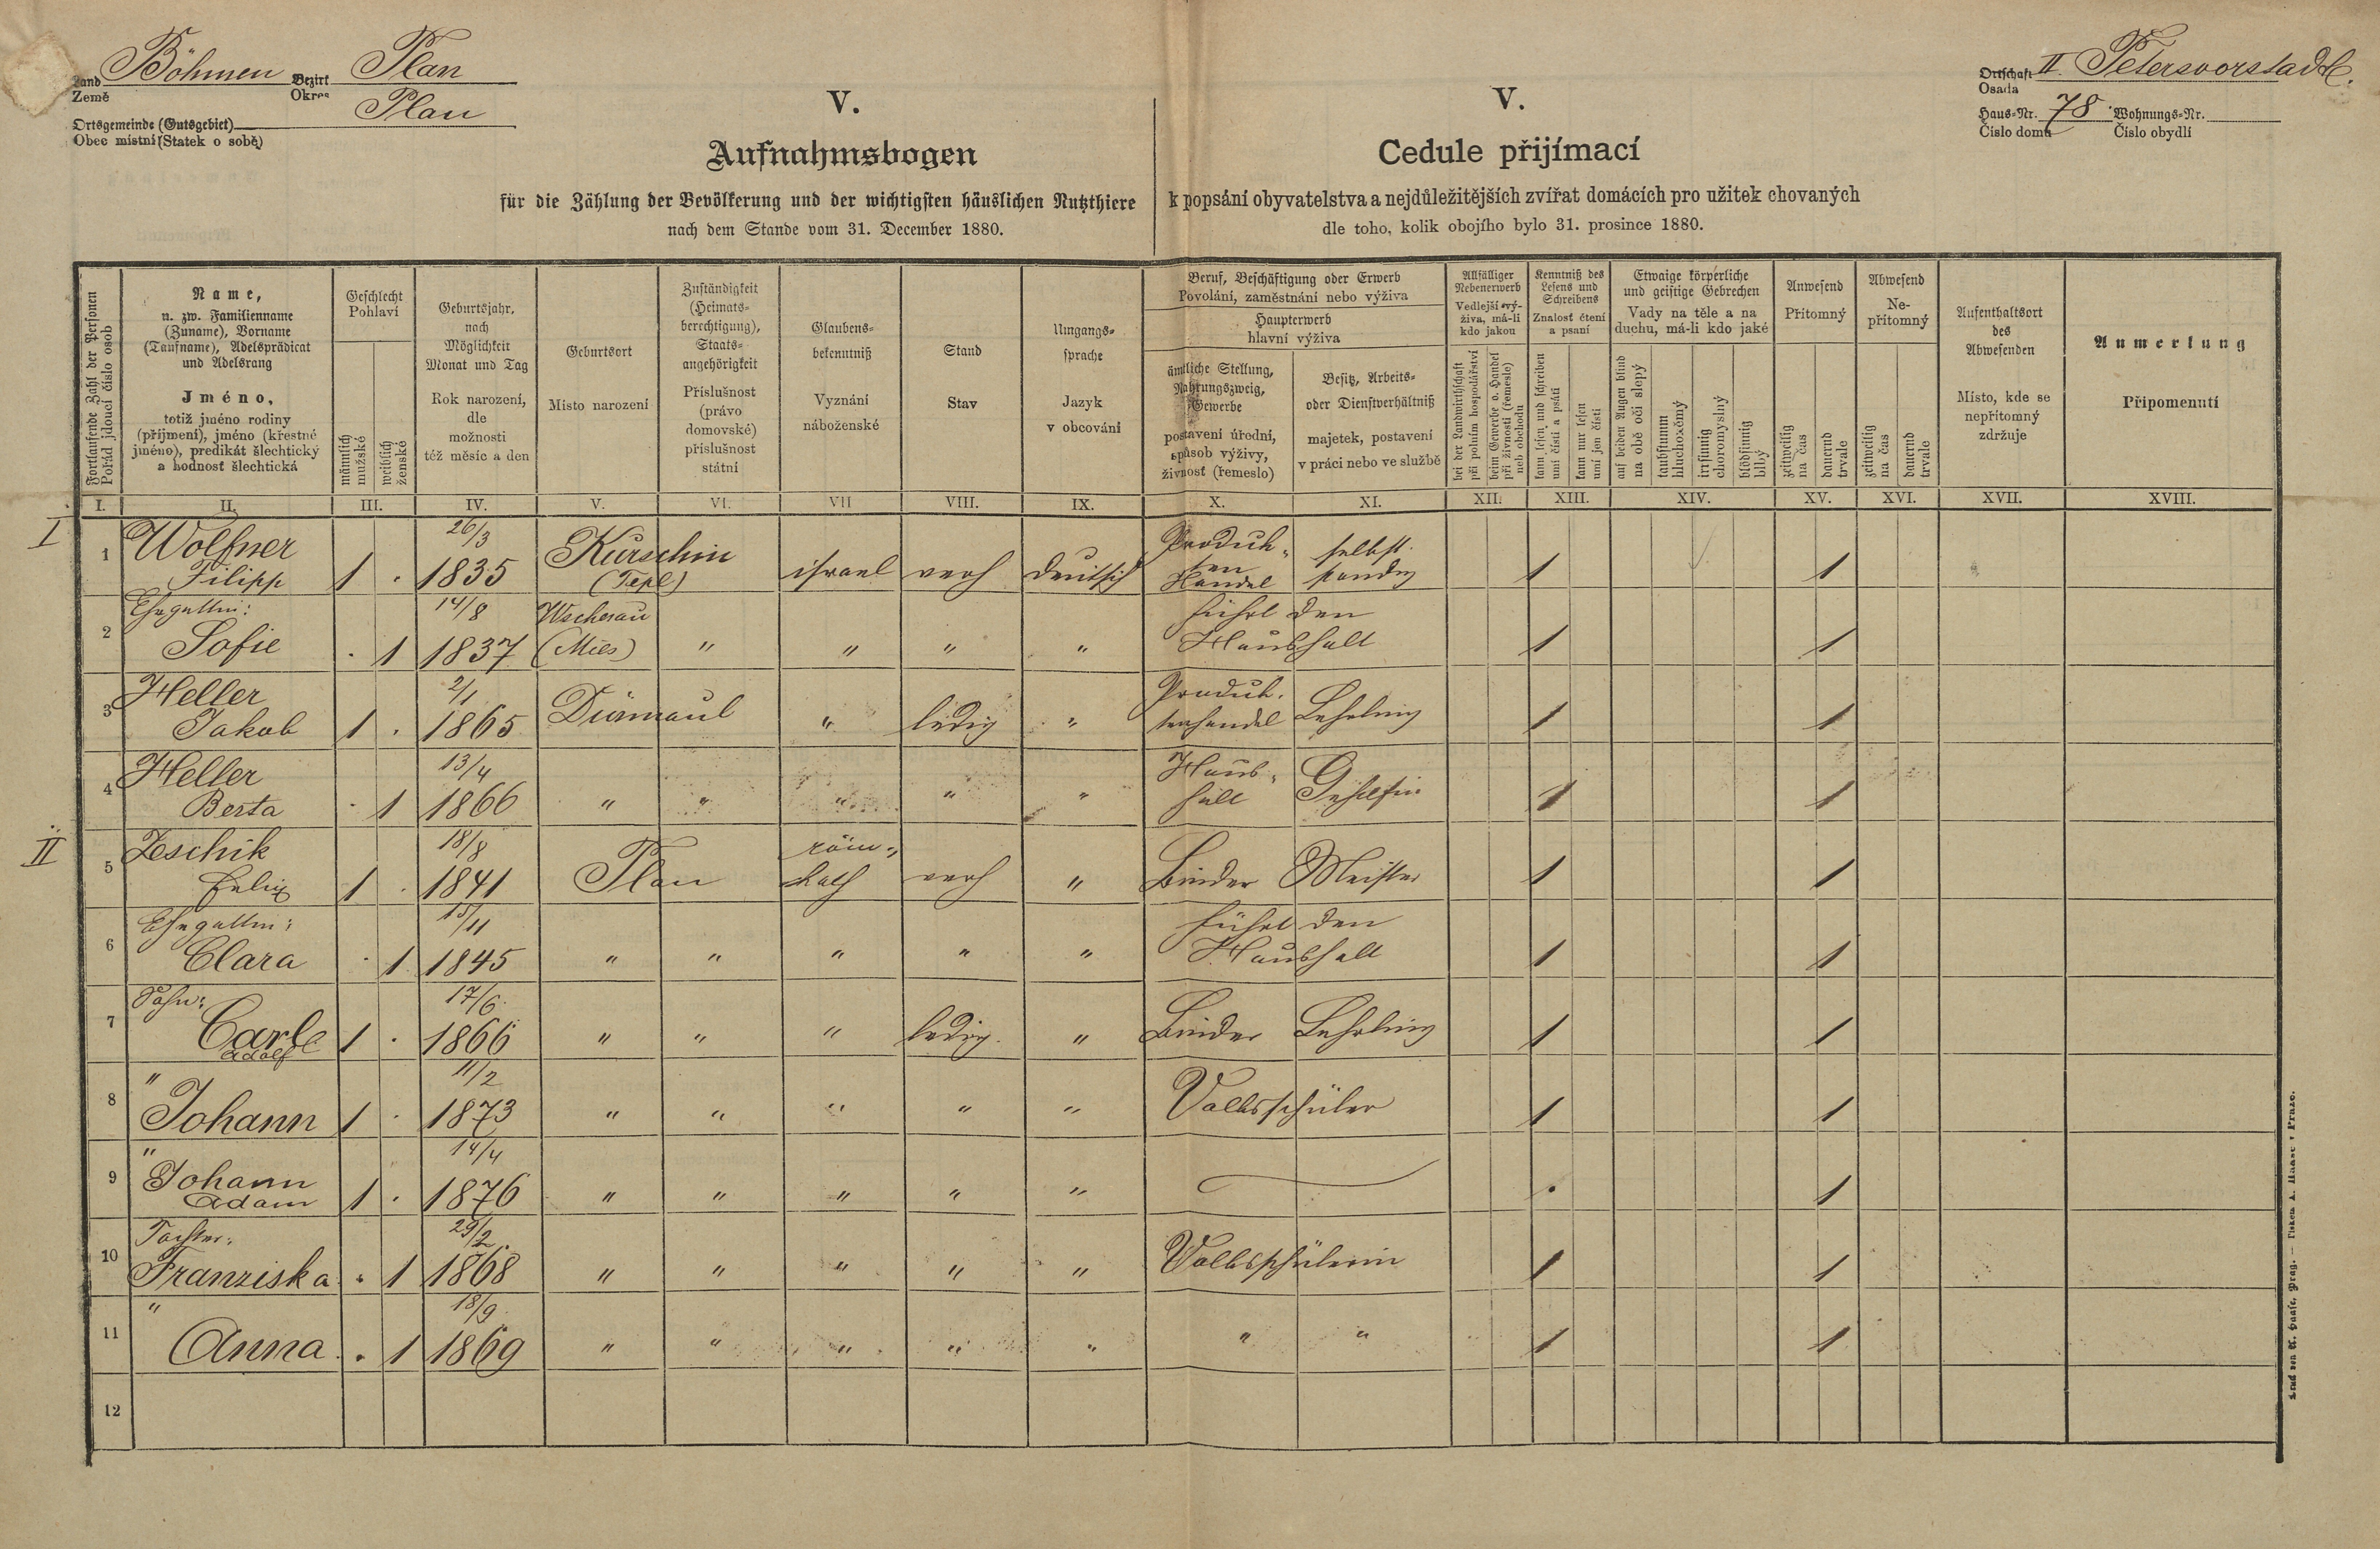 Land Böhmen Bezirk Plan
Země Okres
Ortsgemeinde (Gutsgebiet) Plan
Obec místní (Statek o sobě)
Ortschaft II. Petersvorstadtl.
Osada
Haus-Nr. 78 Wohnungs-Nr.
Číslo domu Číslo obydlí
V.
Aufnahmsbogen
für die Zählung der Bevölkerung und der wichtigsten häuslichen Nutzthiere
nach dem Stande vom 31. December 1880.
V.
Cedule přijímací
k popsání obyvatelstva a nejdůležitějších zvířat domácích pro užitek chovaných
dle toho, kolik obojího bylo 31. prosince 1880.
Fortlaufende Zahl der Personen
Pořád jdoucí číslo osob
Name,
u. zw. Familienname
(Zuname), Vorname
(Taufname), Adelsprädicat
und Adelsrang
Jméno,
totiž jméno rodiny
(příjmení), jméno (křestné
jméno), predikát šlechtický
a hodnost šlechtická
Geschlecht
Pohlaví
männlich
mužské
weiblich
ženské
Geburtsjahr,
nach
Möglichkeit
Monat und Tag
Rok narození,
dle
možnosti
též měsíc a den
Geburtsort
Místo narození
Zuständigkeit
(Heimats-
berechtigung),
Staats-
angehörigkeit
Příslušnost
(právo
domovské)
příslušnost
státní
Glaubens-
bekenntniß
Vyznání
náboženské
Stand
Stav
Umgangs-
sprache
Jazyk
v obcování
Beruf, Beschäftigung oder Erwerb
Povolání, zaměstnání nebo výživa
Haupterwerb
hlavní výživa
ämtliche Stellung,
Nahrungszweig,
Gewerbe
postavení úřední,
způsob výživy,
živnosť (řemeslo)
Besitz, Arbeits-
oder Dienstverhältniß
majetek, postavení
v práci nebo ve službě
Allfälliger
Nebenerwerb
Vedlejší vý-
živa, má-li
kdo jakou
bei der Landwirthschaft
při polním hospodářství
beim Gewerbe o. Handel
při živnosti (řemesle)
neb obchodu
Kenntniß des
Lesens und
Schreibens
Znalosť čtení
a psaní
kann lesen und schreiben
umí čísti a psáti
kann nur lesen
umí jen čísti
Etwaige körperliche
und geistige Gebrechen
Vady na těle a na
duchu, má-li kdo jaké
auf beiden Augen blind
na obě oči slepý
taubstumm
hluchoněmý
irrsinnig
choromyslný
blödsinnig
blbý
Anwesend
Přítomný
zeitweilig
na čas
dauernd
trvale
Abwesend
Ne-
přítomný
zeitweilig
na čas
dauernd
trvale
Aufenthaltsort
des
Abwesenden
Místo, kde se
nepřítomný
zdržuje
Anmerkung
Připomenutí
I. II. III. IV. V. VI. VII VIII. IX. X. XI. XII. XIII. XIV. XV. XVI. XVII. XVIII.
I
1 Wolfner 26/3 Kurschin Produk- selbst-
Filipp 1 . 1835 (Tepl) israel verh deutsch ten Handel ständig 1 1
2 Ehegattin: 14/8 Wscherau führt den
Sofie . 1 1837 (Mies) " " " " Haushalt 1 1
3 Heller 2/1 Dürmaul Produk-
Jakob 1 . 1865 " ledig " tenhandel Lehrling 1 1
4 Heller 13/4 Haus-
Berta . 1 1866 " " " " " halt Gehilfin 1 1
II
5 Zeschik 18/8 röm-
Felix 1 . 1841 Plan kath verh " Binder Meister 1 1
6 Ehegattin: 15/11 führt den
Clara . 1 1845 " " " " " Haushalt 1 1
7 Sohn: 17/6
Carl 1 . 1866 " " " ledig " Binder Lehrling 1 1
Adolf
8 " 11/2
Johann 1 . 1873 " " " " " Volksschüler 1 1
9 " 14/4
Johann
Adam 1 . 1876 " " " " " . 1
10 Tochter: 29/2
Franziska . 1 1868 " " " " " Volksschülerin 1 1
11 " 18/9
Anna . 1 1869 " " " " " " " 1 1
12
Druck von A. Haase, Prag. — Tiskem A. Haase v Praze.